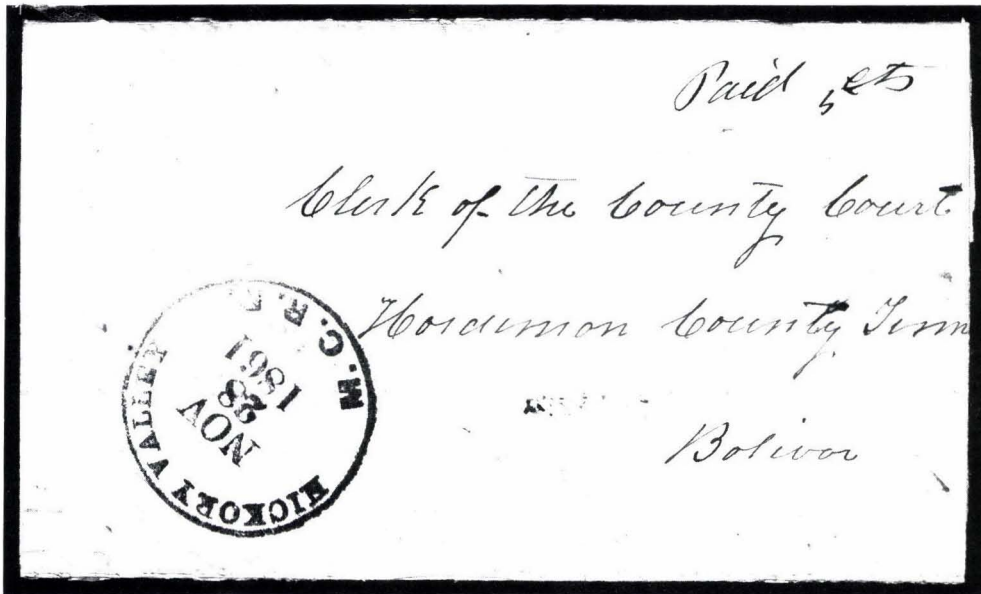 Paid 5 cts
Clerk of the County Court
Hardeman County Tenn
Bolivar
HICKORY VALLEY
M. C. R. R.
NOV
28
1861